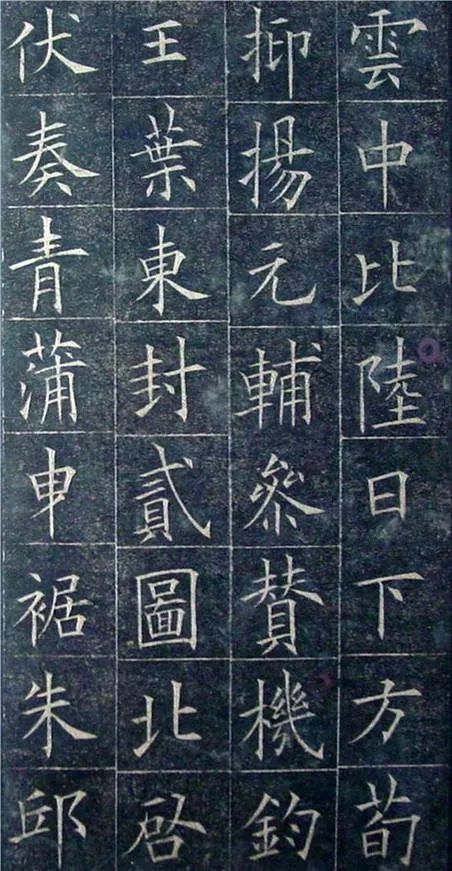 雲中比陸日下方荀
抑揚元輔參賛機鈞
王葉東封貳圖北啓
伏奏青蒲申裾朱邱